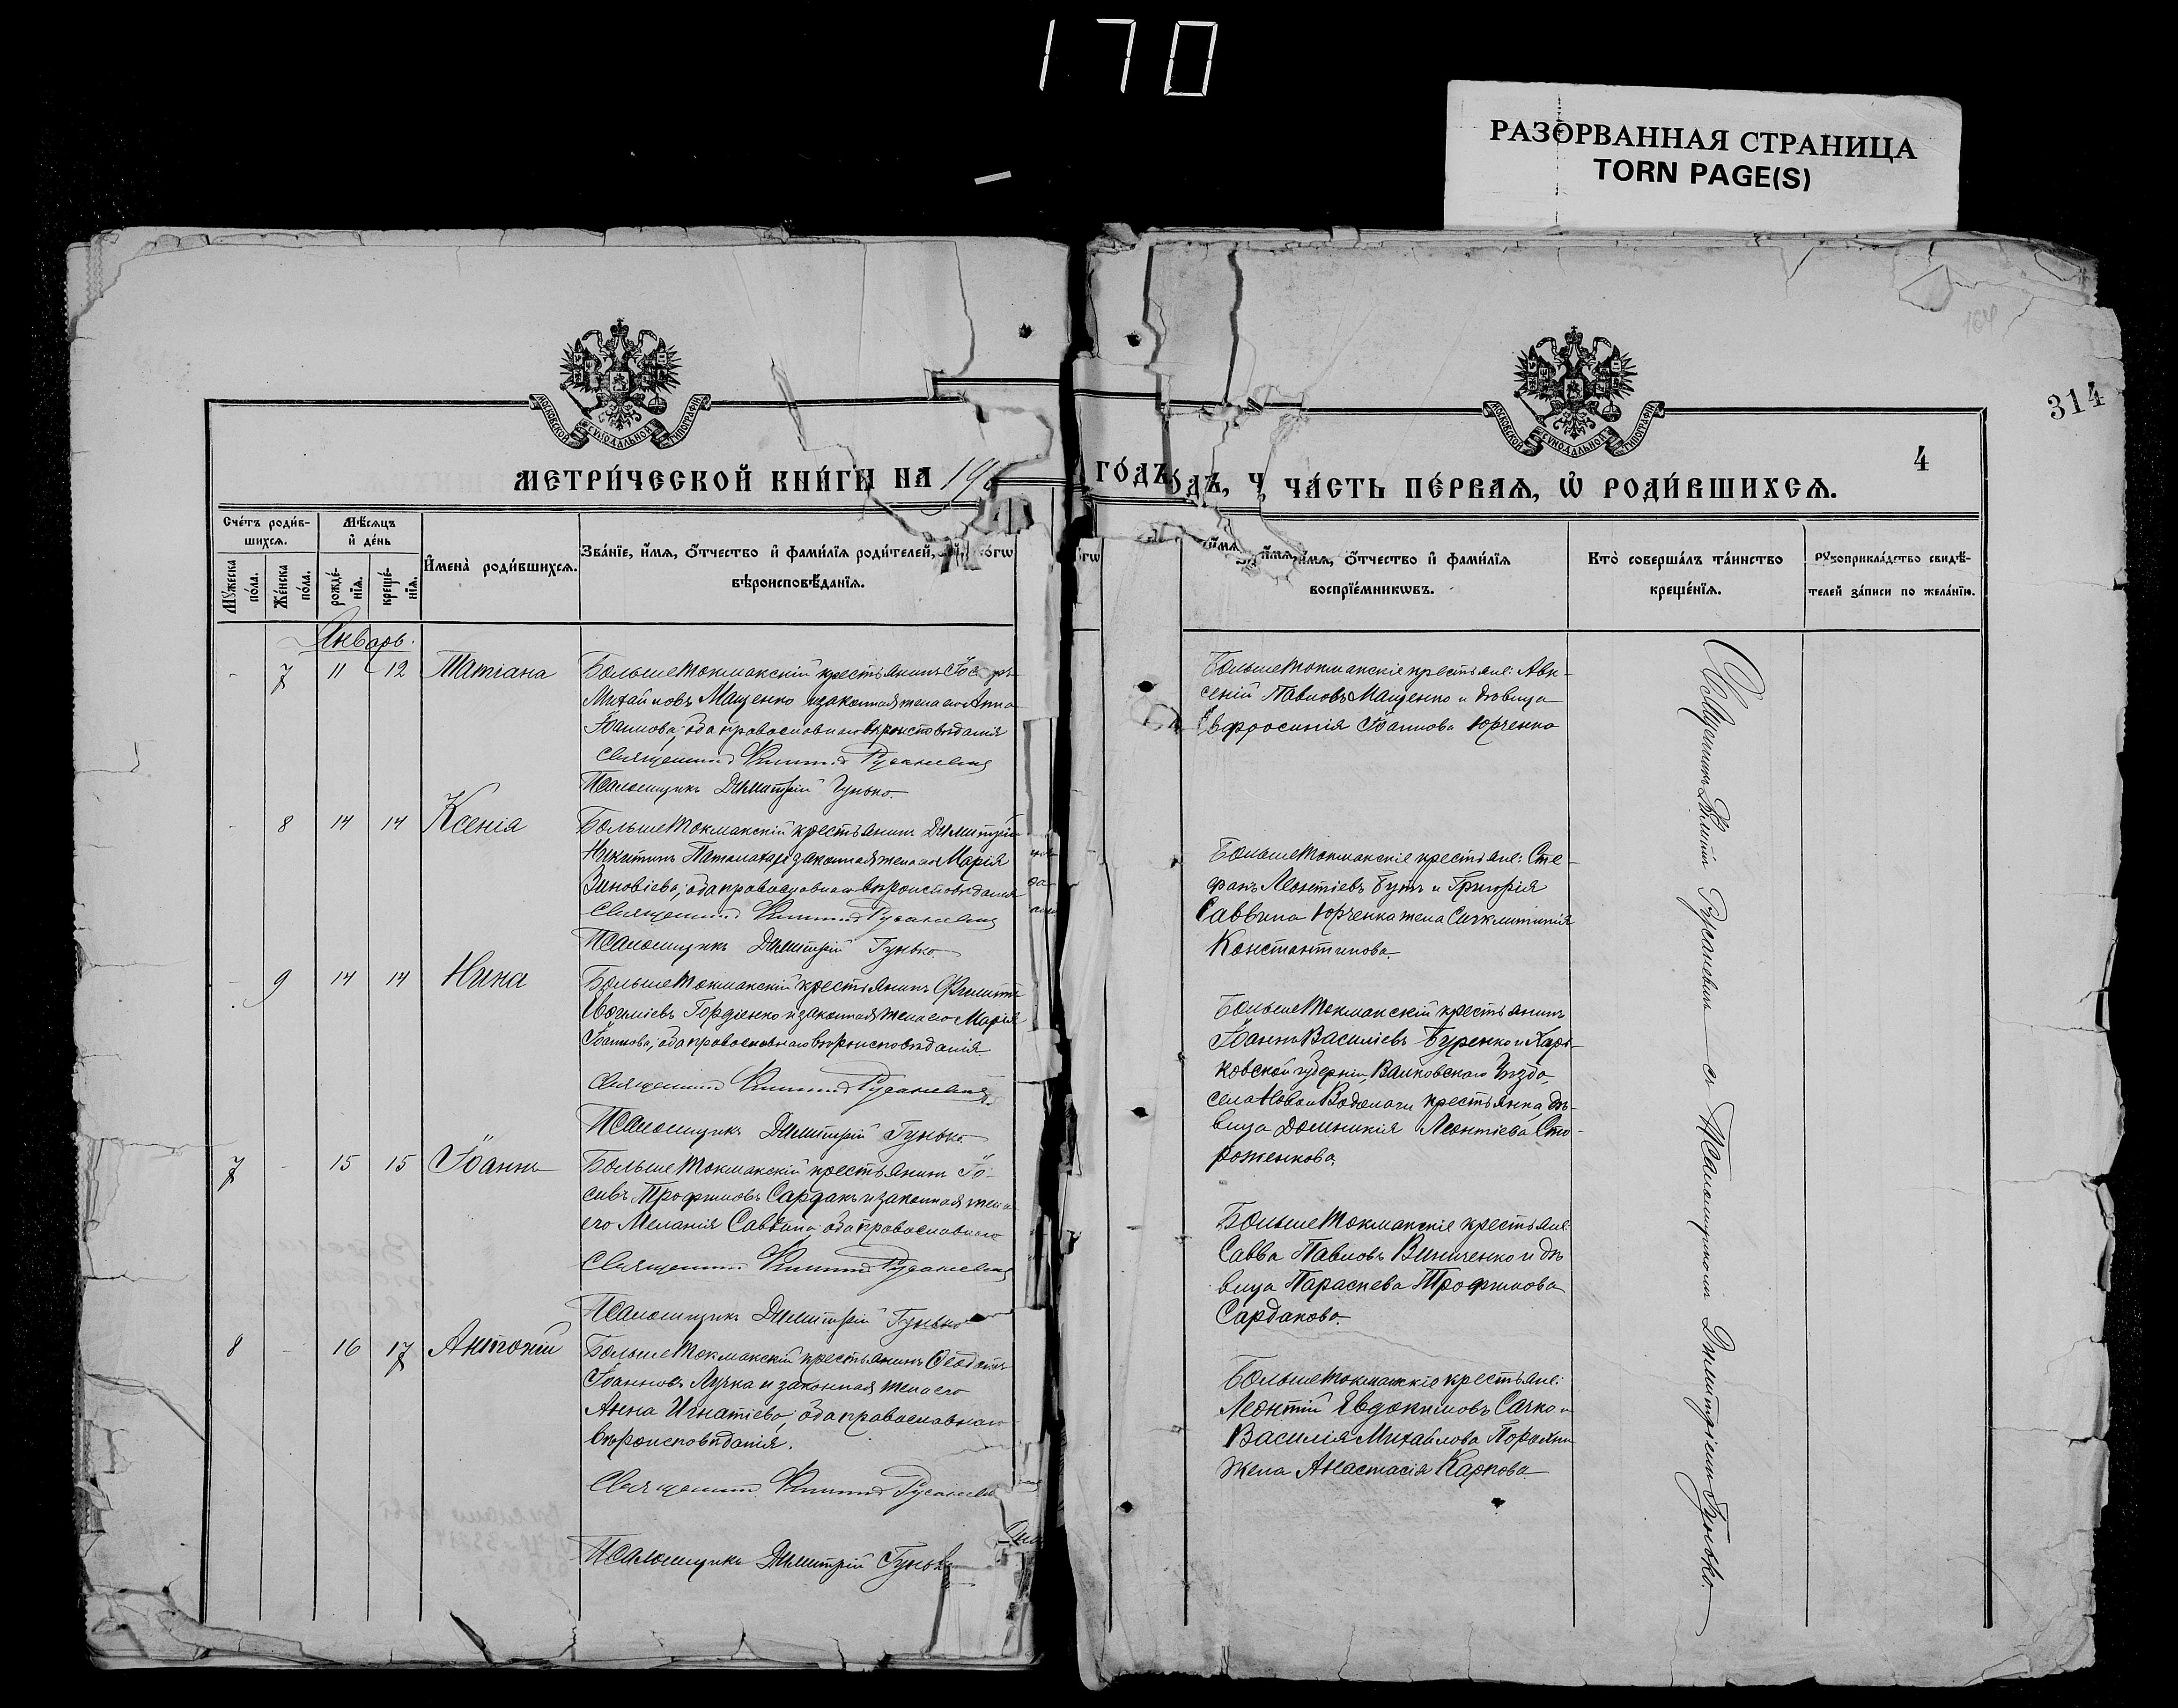 170
РАЗОРВАННАЯ СТРАНИЦА
TORN PAGE(S)
314
4
МОСКОВСКОЙ СѴНОДАЛЬНОЙ ТИПОГРАФІИ
МЕТРИ́ЧЕСКОЙ КНИ́ГИ НА 19
ГО́ДЪ
МОСКОВСКОЙ СѴНОДАЛЬНОЙ ТИПОГРАФІИ
ЧА́СТЬ ПЕ́РВАѦ, Ѡ҆ РОДИ́ВШИХСѦ.
Сче́тъ роди́вшихсѧ.
Мꙋ́жеска по́ла.
Же́нска по́ла.
Мѣ́сѧцъ и҆ де́нь
рожде́нїѧ.
креще́нїѧ.
И҆мена̀ роди́вшихсѧ.
Зва́нїе, и҆́мѧ, ѻ҆́тчество и҆ фами́лїѧ роди́телей,
вѣроисповѣ́данїѧ.
и҆́мѧ, ѻ҆́тчество и҆ фами́лїѧ
воспрїе́мникѡвъ.
Кто̀ соверша́лъ та́инство
креще́нїѧ.
Рꙋкоприкла́дство свидѣ́-
телей за́писи по жела́нїю.
Январь.
- 7 11 12 Татіана
Больше Токмакскій крестьянинъ
Михайловъ Мащенко и законная жена его Анна
Іоаннова, оба православнаго вѣроисповѣданія
Священникъ Филиппъ Русаневичъ
Псаломщикъ Димитрій Гунько.
Больше Токмакскіе крестьяне: Авк-
сеній Павловъ Мащенко и дѣвица
Евфросинія Іоаннова Юрченко
- 8 14 14 Ксенія
Больше Токмакскій крестьянинъ Димитрій
Никитинъ и законная жена его Марія
Зиновіева, оба православнаго вѣроисповѣданія
Священникъ Филиппъ Русаневичъ
Псаломщикъ Димитрій Гунько.
Больше Токмакскіе крестьяне: Сте-
фанъ Леонтіевъ Бутъ и Григорія
Саввина Юрченка жена Синклитикія
Константинова.
- 9 14 14 Нина
Больше Токмакскій крестьянинъ Филиппъ
Гордіенко и законная жена его Марія
Іоаннова, оба православнаго вѣроисповѣданія
Священникъ Филиппъ Русаневичъ
Псаломщикъ Димитрій Гунько.
Больше Токмакскій крестьянинъ
Іоаннъ Василіевъ Буренко и Харь-
ковской губерніи, Валковскаго уѣзда,
села Новой Водолаги крестьянка, дѣ-
вица Домникія Леонтіева Сто-
роженкова.
7 - 15 15 Іоаннъ
Больше Токмакскій крестьянинъ Іо-
сифъ Трофимовъ Сардакъ и законная жена
его Меланія Саввина, оба православнаго
Священникъ Филиппъ Русаневичъ
Псаломщикъ Димитрій Гунько
Больше Токмакскіе крестьяне
Савва Павловъ Виниченко и дѣ-
вица Параскева Трофимова
Сардакова.
8 - 16 17 Антоній
Больше Токмакскій крестьянинъ Ѳеодотъ
Іоанновъ Лучка и законная жена его
Анна Игнатіева, оба православнаго
вѣроисповѣданія.
Священникъ Филиппъ Русаневичъ
Псаломщикъ Димитрій Гунько
Больше Токмакскіе крестьяне:
Леонтій Евдокимовъ Сачко и
Василія Михайлова
жена Анастасія Карпова
Священникъ Филиппъ Русаневичъ съ Псаломщикомъ Димитріемъ Гунько.